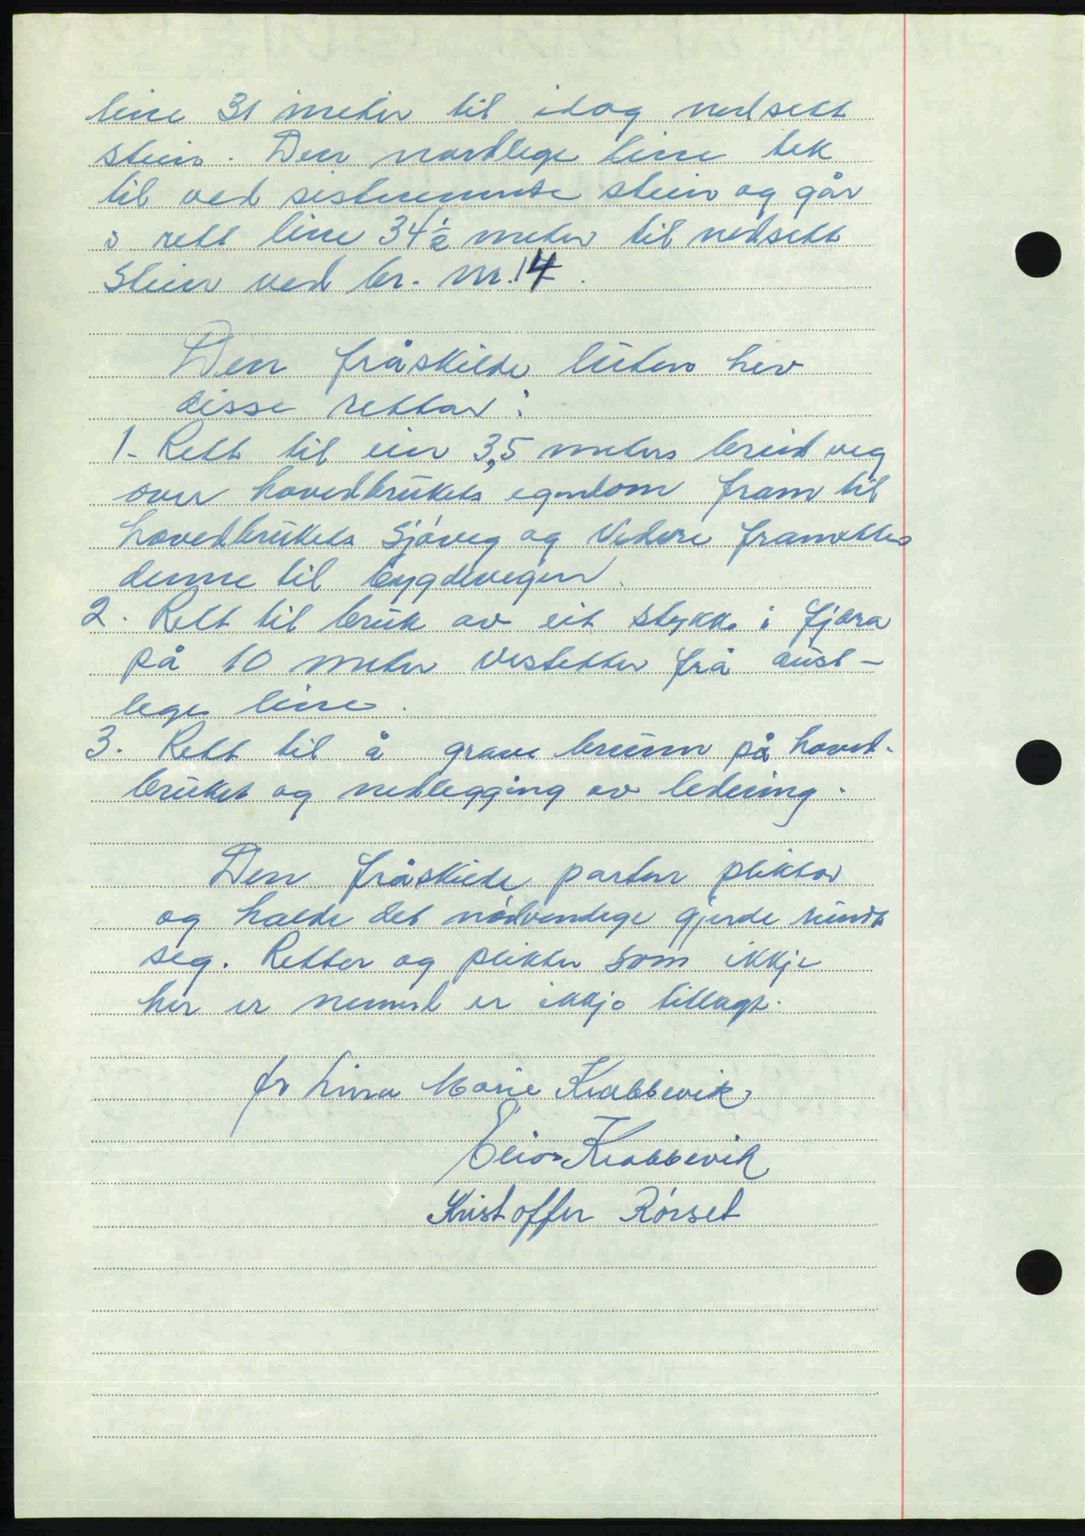 line 31 meter til idag nedsett
stein. Den nordlege line tek
til ved sistnemnde stein og går
i rett line 34½ meter til nedsett
stein ved br. nr. 14.
Den fråskilde luten hev
disse rettar:
1. Rett til ein 3,5 meters breid veg
over hovedbrukets egendom fram til
hovedbrukets Sjøveg og Videre framettes
denne til bygdevegen.
2. Rett til bruk av eit stykke i fjæra
på 10 meter vestetter frå aust-
lege line.
3. Rett til å grave brunn på hoved-
bruket og nedlegging av ledning.
Den fråskilde parten pliktar
og halde det nødvendige gjerde rundt
seg. Retter og plikter som ikkje
her er nemnt er ikkje tillagt.
fr Marie Krabbevik
Krabbevik
Kristoffer Rørset